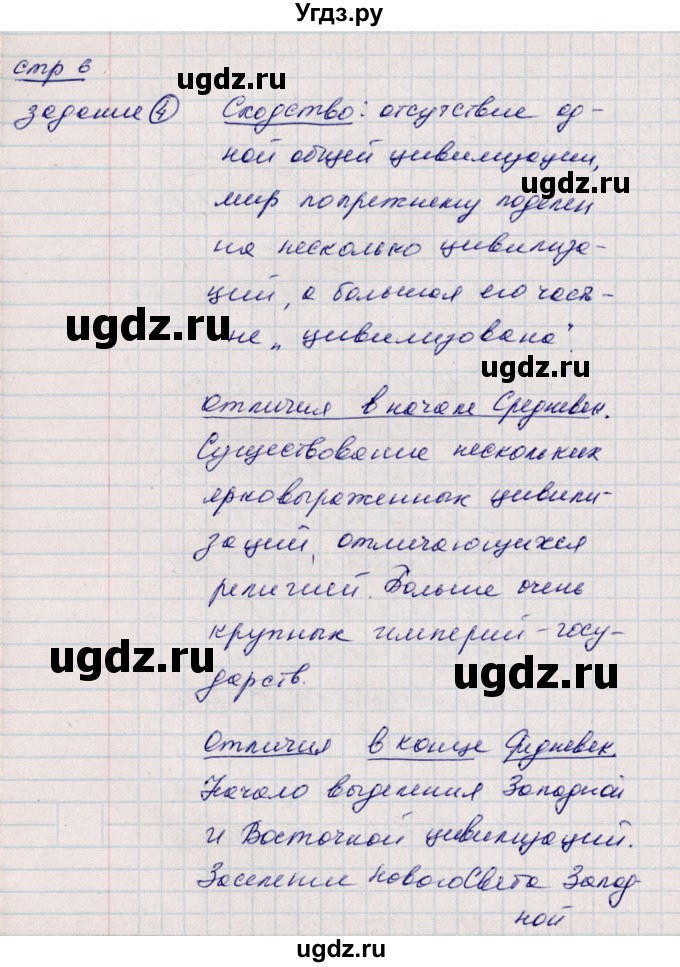 Угдз.ру
стр 6
ugdz.ru
задание 4 Сходство: отсутствие од-
ной общей цивилизации,
ugdz.ru
мир попрежнему поделен
на несколько цивилиза-
ций, а большая его часть-
ugdz.ru
не „цивилизована".
ugdz.ru
Отличия в начале Средневек.
Существование нескольких
ярковыраженных цивили-
ugdz.ru
заций, отличающихся
религией. Больше очень
крупных империй-госу-
ugdz.ru
ugdz.ru
дарств.
Отличия в конце Средневек.
Начало выделения Западной
и Восточной цивилизаций.
ugdz.ru
Заселение Нового Света Запад-
ной
ugdz.ru